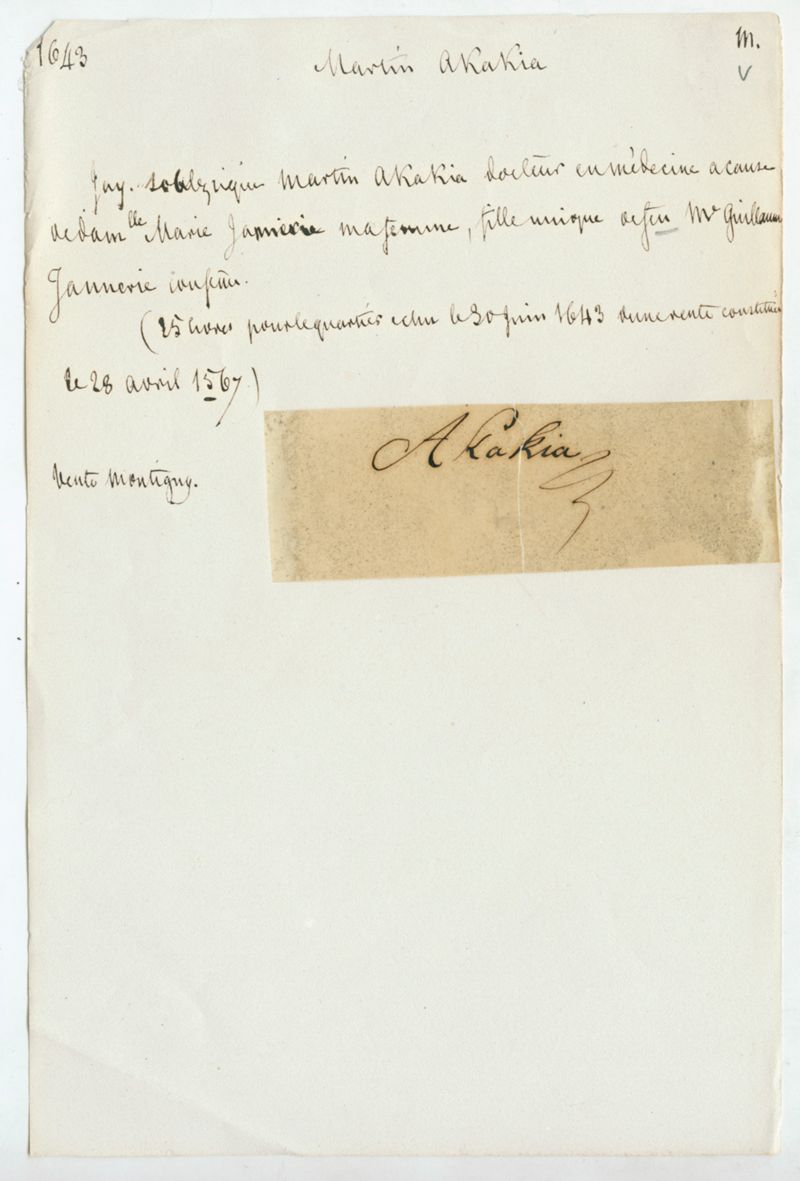 1643
Martin Akakia
m.
v
Jay. soublzigué Martin Akakia docteur en médecine a cause
de dam^lle Marie Jannerie ma femme, fille unique de feu M^r Guillaume
Jannerie
(25 livres pour le quartier echu le 30 Juin 1643 d'une rente constituée
le 28 avril 1567)
Akakia
Vente Montigny.